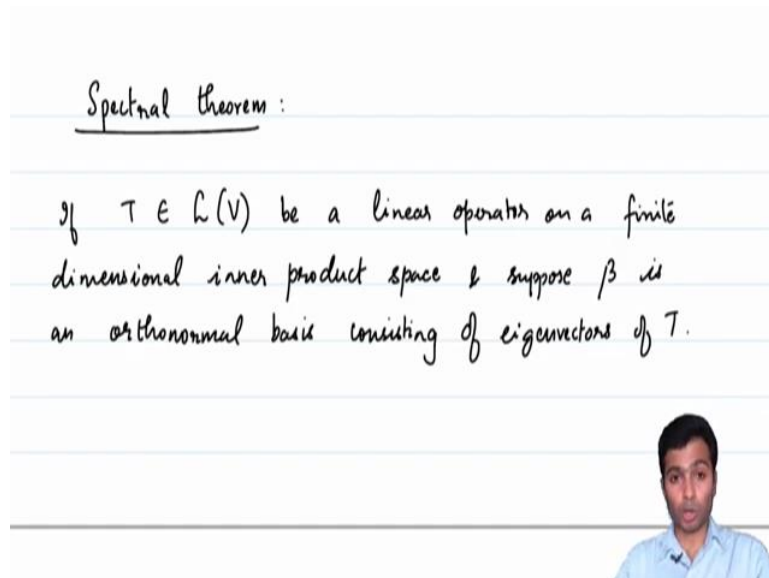 Spectral theorem :
If T ∈ L(V) be a linear operator on a finite
dimensional inner product space & suppose β is
an orthonormal basis consisting of eigenvectors of T.